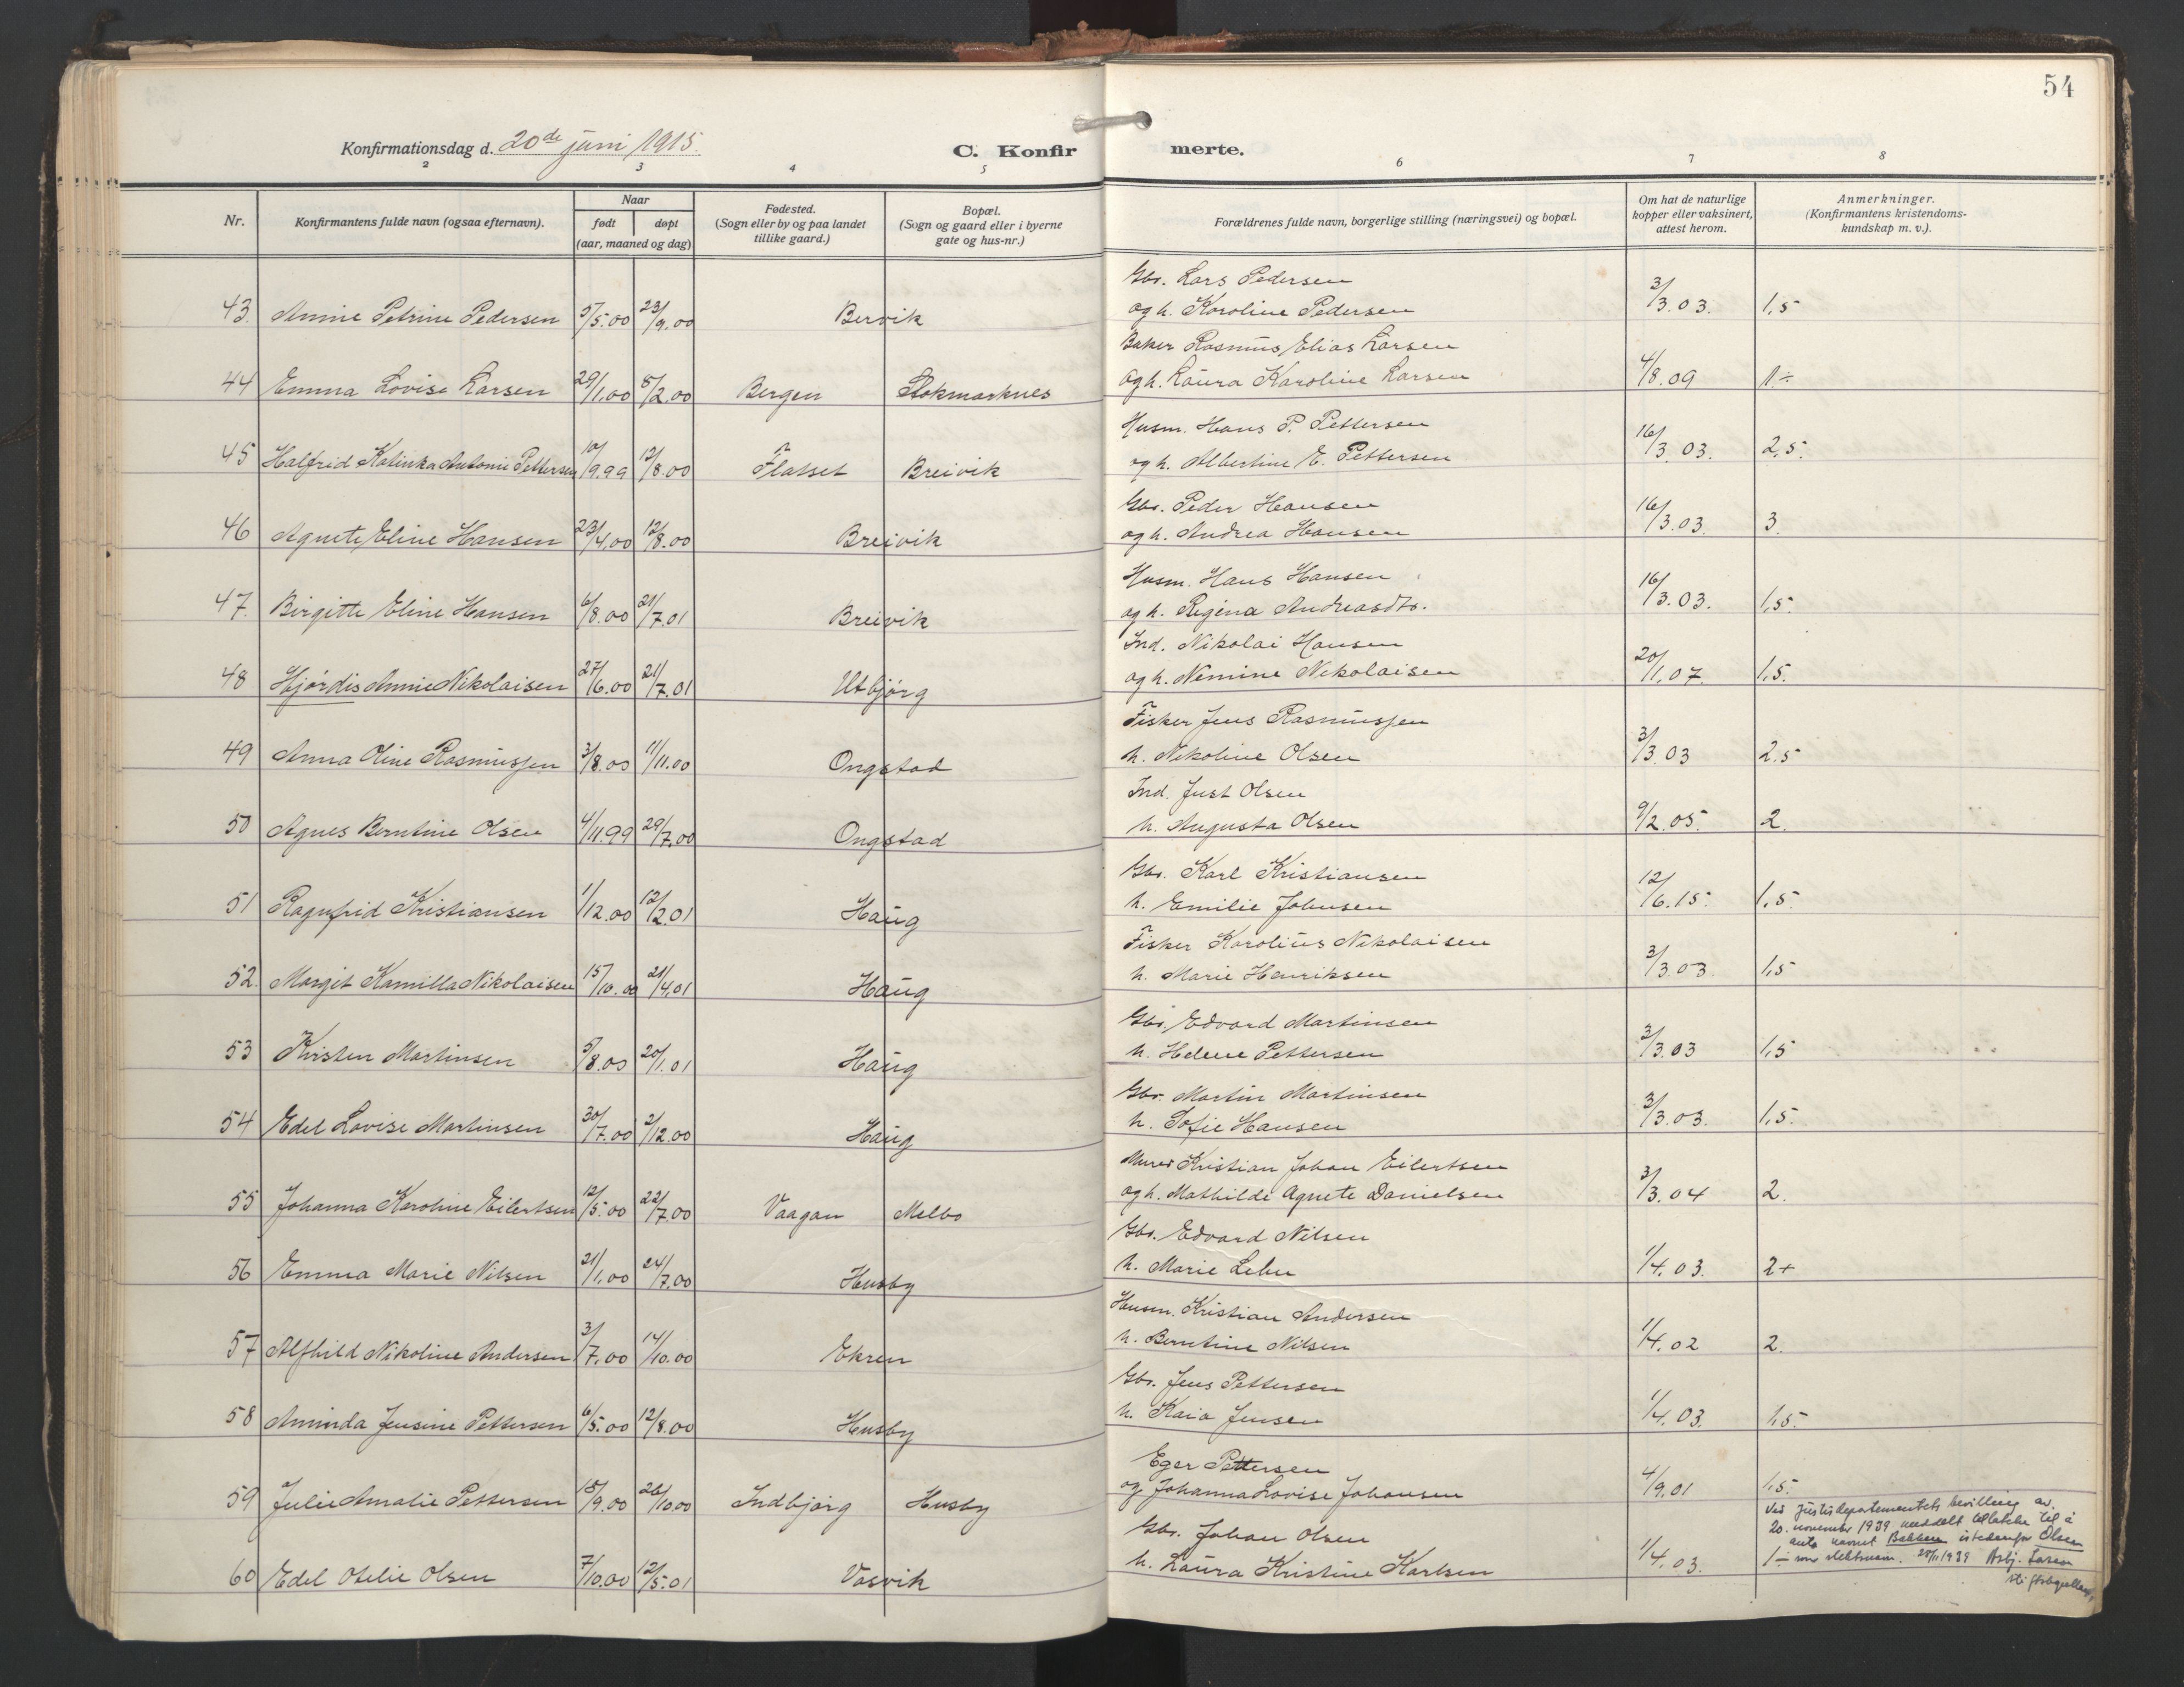 54
Konfirmationsdag d. 20de juni 1915.
C. Konfirmerte.
2 3 4 5 6 7 8
Nr.
Konfirmantens fulde navn (ogsaa efternavn).
Naar
født døpt
(aar, maaned og dag)
Fødested.
(Sogn eller by og paa landet
tillike gaard.)
Bopæl.
(Sogn og gaard eller i byerne
gate og hus-nr.)
Forældrenes fulde navn, borgerlige stilling (næringsvei) og bopæl.
Om hat de naturlige
kopper eller vaksinert,
attest herom.
Anmerkninger.
(Konfirmantens kristendoms-
kundskap m. v.).
Gbr. Lars Pedersen
43. Annie Petrine Pedersen 5/5.00 23/9.00 Bervik og h. Karoline Pedersen 3/3.03. 1,5
Baker Rasmus Elias Larsen
44 Emma Lovise Larsen 29/1.00 5/2.00 Bergen Stokmarknes og h. Laura Karoline Larsen 4/8.09 1÷
Husm. Hans P. Pettersen
45 Halfrid Katinka Antonie Pettersen 10/9.99 12/8.00 Flatset Breivik og h. Albertine E. Pettersen 16/3.03. 2,5.
Gbr. Peder Hansen
46 Agnete Eline Hansen 23/4.00 12/8.00 Breivik og h. Andrea Hansen 16/3.03. 3.
Husm. Hans Hansen
47. Birgitte Eline Hansen 6/8.00 21/7.01 Breivik og h. Regina Andreasdtr. 16/3.03. 1,5.
Ind. Nikolai Hansen
48 Hjørdis Annie Nikolaisen 27/6.00 21/7.01 Utbjørg og h. Nemine Nikolaisen 20/11.07. 1,5.
Fisker Jens Rasmussen
49 Anna Oline Rasmussen 3/8.00 11/11.00 Ongstad h. Nikoline Olsen 3/3.03 2,5
Ind. Just Olsen
50 Agnes Berntine Olsen 4/11.99 29/7.00 Ongstad h. Augusta Olsen 9/2.05. 2.
Gbr. Karl Kristiansen
51 Ragnfrid Kristiansen 1/12.00 12/2.01 Haug h. Emilie Johnsen 12/6.15. 1,5.
Fisker Karolius Nikolaisen
52. Margit Kamilla Nikolaisen 15/10.00 21/4.01 Haug h. Marie Henriksen 3/3.03. 1,5
Gbr. Edvard Martinsen
53 Kirsten Martinsen 5/8.00 20/1.01 Haug h. Helene Pettersen 3/3.03 1,5
Gbr. Martin Martinsen
54 Edel Lovise Martinsen 30/7.00 2/12.00 Haug h. Sofie Hansen 3/3.03. 1,5.
Murer Kristian Johan Eilertsen
55 Johanna Karoline Eilertsen 12/5.00 22/7.00 Vaagan Melbo og h. Mathilde Agnete Danielsen 3/3.04 2.
Gbr. Edvard Nilsen
56 Emma Marie Nilsen 21/1.00 24/7.00 Husby h. Marie 1/4.03. 2+
Husm. Kristian Andersen
57 Alfhild Nikoline Andersen 3/7.00 14/10.00 Ekren h. Berntine Nilsen 1/4.02 2.
Gbr. Jens Pettersen
58 Aminda Jensine Pettersen 6/5.00 12/8.00 Husby h. Kaia Jensen 1/4.03. 1,5.
Eger Pettersen
59 Julie Amalie Pettersen 15/9.00 26/10.00 Indbjørg Husby og Johanna Lovise Johansen 4/9.01 1,5.
Gbr. Johan Olsen
60 Edel Otelie Olsen 7/10.00 12/5.01 Vasvik h. Laura Kristine Karlsen 1/4.03. 1÷
Ved Justisdepartementets bevilling av
20. november 1939 meddelt tillatelse til å
anta navnet Bakken istedenfor Olsen
som slektsnavn. 28/11 1939 Asbj. Larsen